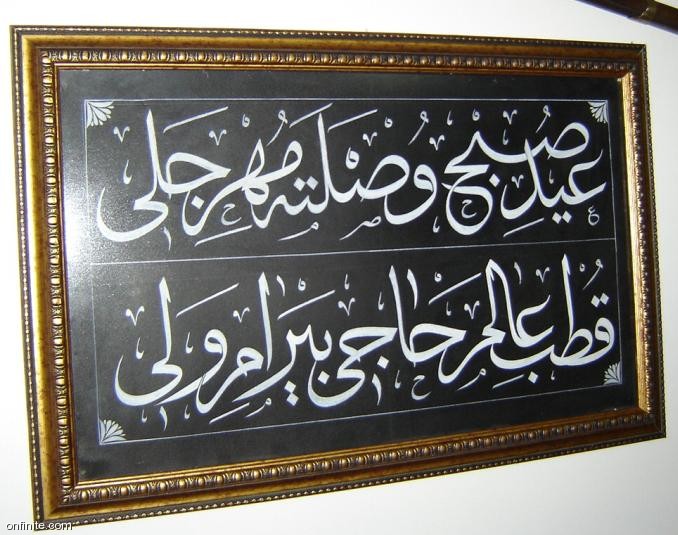 عيد صبح وصلته مهر جلى
قطب عالم حاجى بيرام ولى
onfinite.com